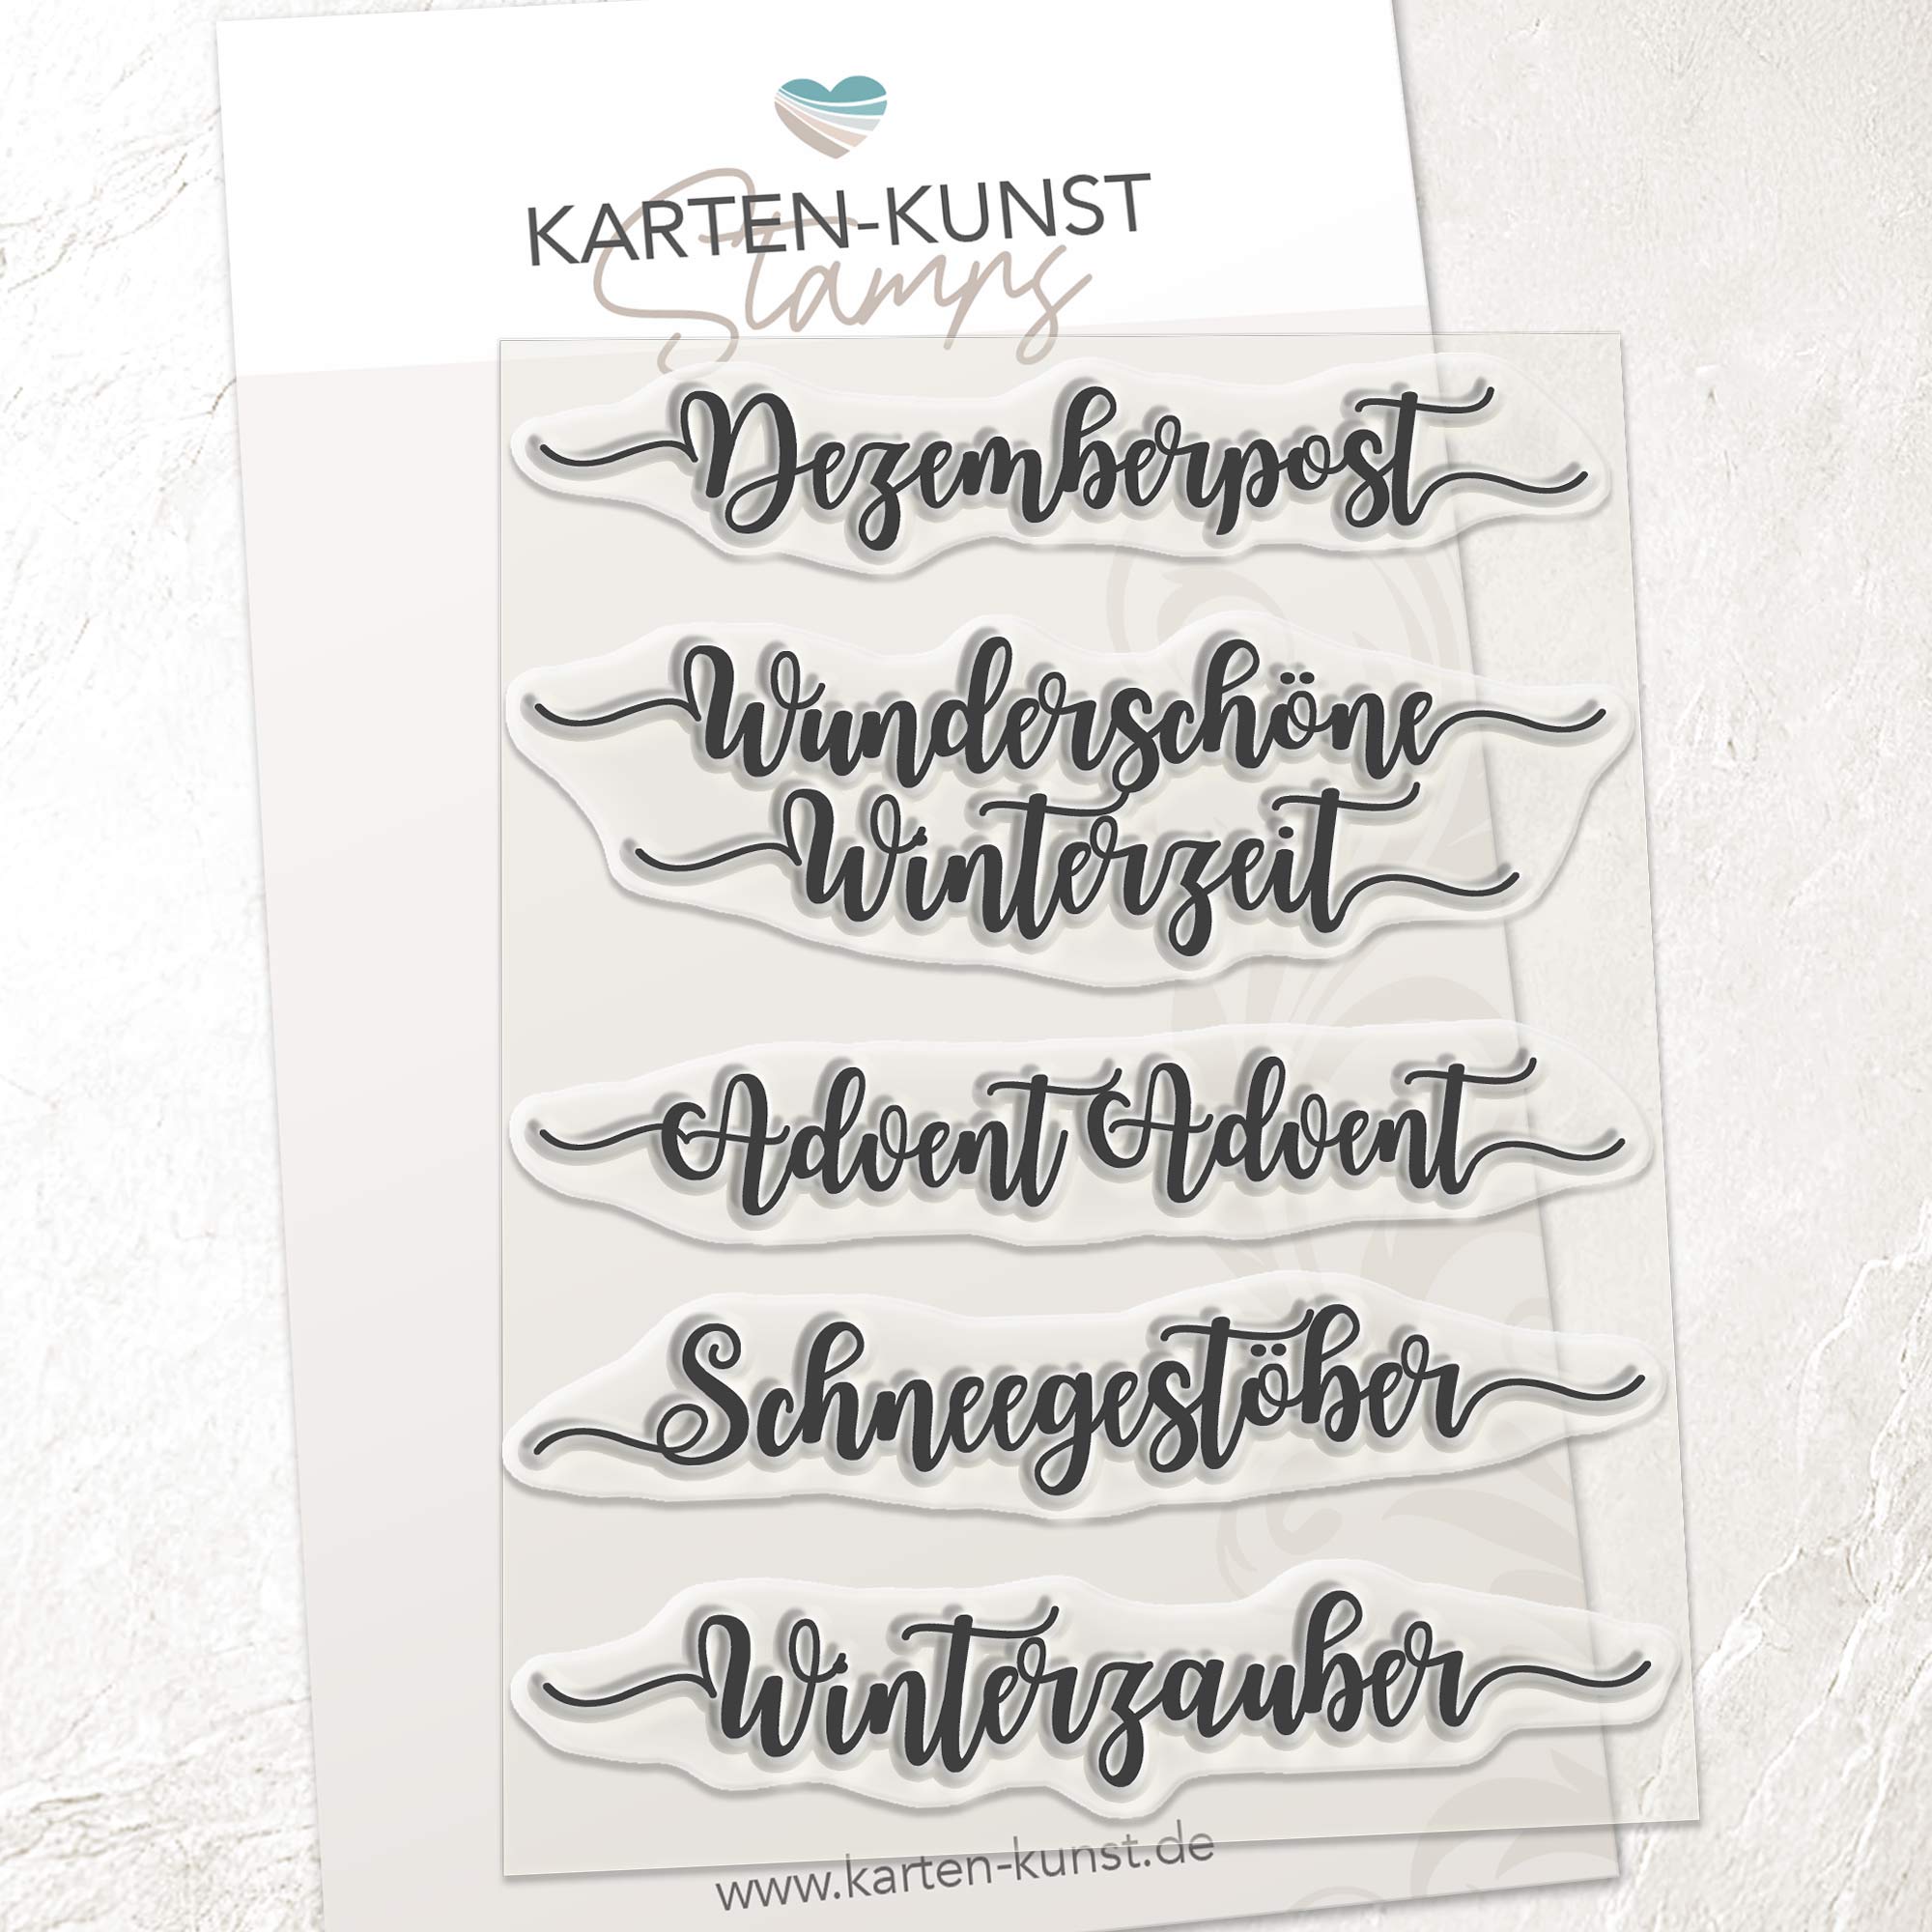 KARTEN-KUNST
Stamps
Dezemberpost
Wunderschöne
Winterzeit
Advent Advent
Schneegestöber
Winterzauber
www.karten-kunst.de